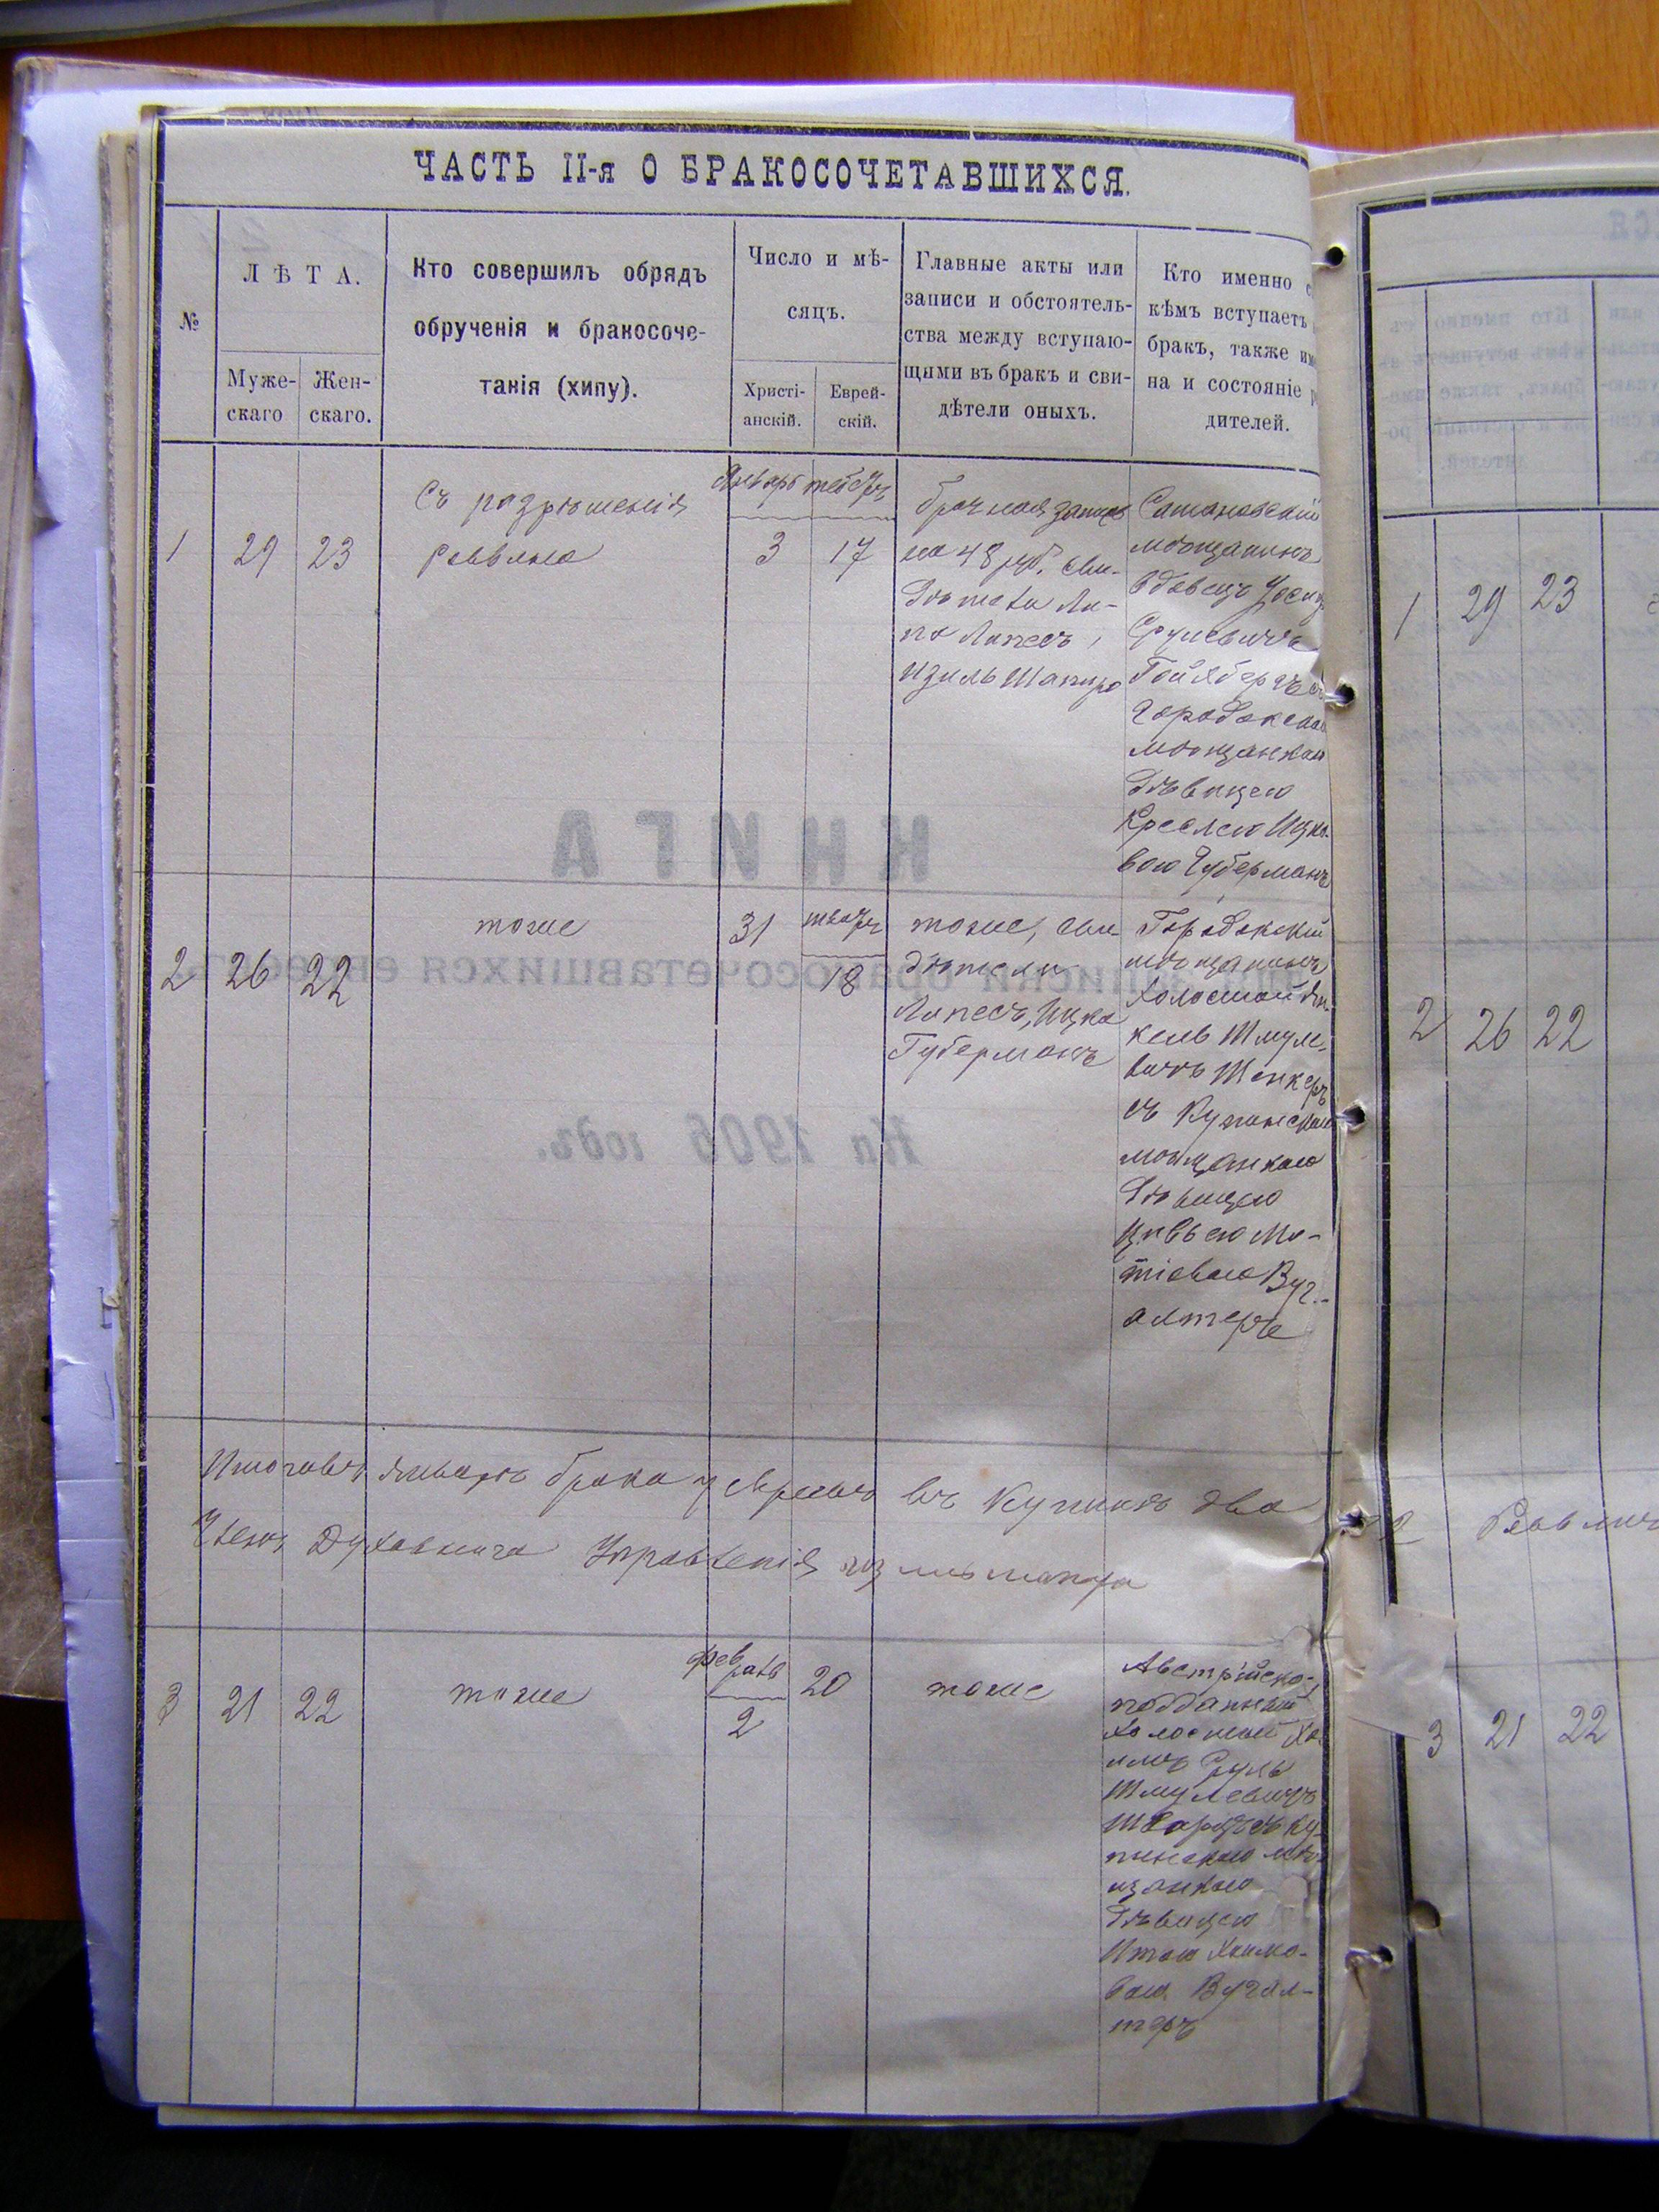 ЧАСТЬ II-я О БРАКОСОЧЕТАВШИХСЯ.
№
ЛѢТА.
Муже-
скаго
Жен-
скаго.
Кто совершилъ обрядъ
обрученія и бракосоче-
танія (хипу).
Число и мѣ-
сяцъ.
Христі-
анскій.
Еврей-
скій.
Главные акты или
записи и обстоятель-
ства между вступаю-
щими въ бракъ и сви-
дѣтели оныхъ.
Кто именно с
кѣмъ вступаетъ
бракъ, также им
на и состояніе р
дителей.
1
29
23
Съ разрѣшенія
Раввина
Январь
3
17
брачная запись
на 48 руб. сви-
Сатановскій
мѣщанинъ
вдовецъ
Срулевичъ
мѣщанкою
дѣвицею
Ицко-
вою Губерманъ
2
26
22
тоже
31
18
тоже, сви-
дѣтели
Липесъ, Ицко
Губерманъ
Городокскій
мѣщанинъ
холостой Ян-
кель Шмуле-
вичъ Шенкеръ
съ Купинскою
мѣщанкою
дѣвицею
Цивьею Мо-
тіевою Вуг-
алтеръ
Итого въ Январѣ брака у евреевъ въ Купинѣ два
Членъ Духовнаго Управленія
3
21
22
тоже
февраль
2
20
тоже
Австрійско-
подданный
холостой
Сруль
Шмулевичъ
Шварцъ съ Ку-
пинскою мѣ-
щанкою
дѣвицею
Итою Хаимо-
вою Вугал-
теръ
1
29
23
2
26
22
2
Раввинъ
3
21
22
КНИГА
записки бракосочетавшихся евреевъ
На 1906 годъ.